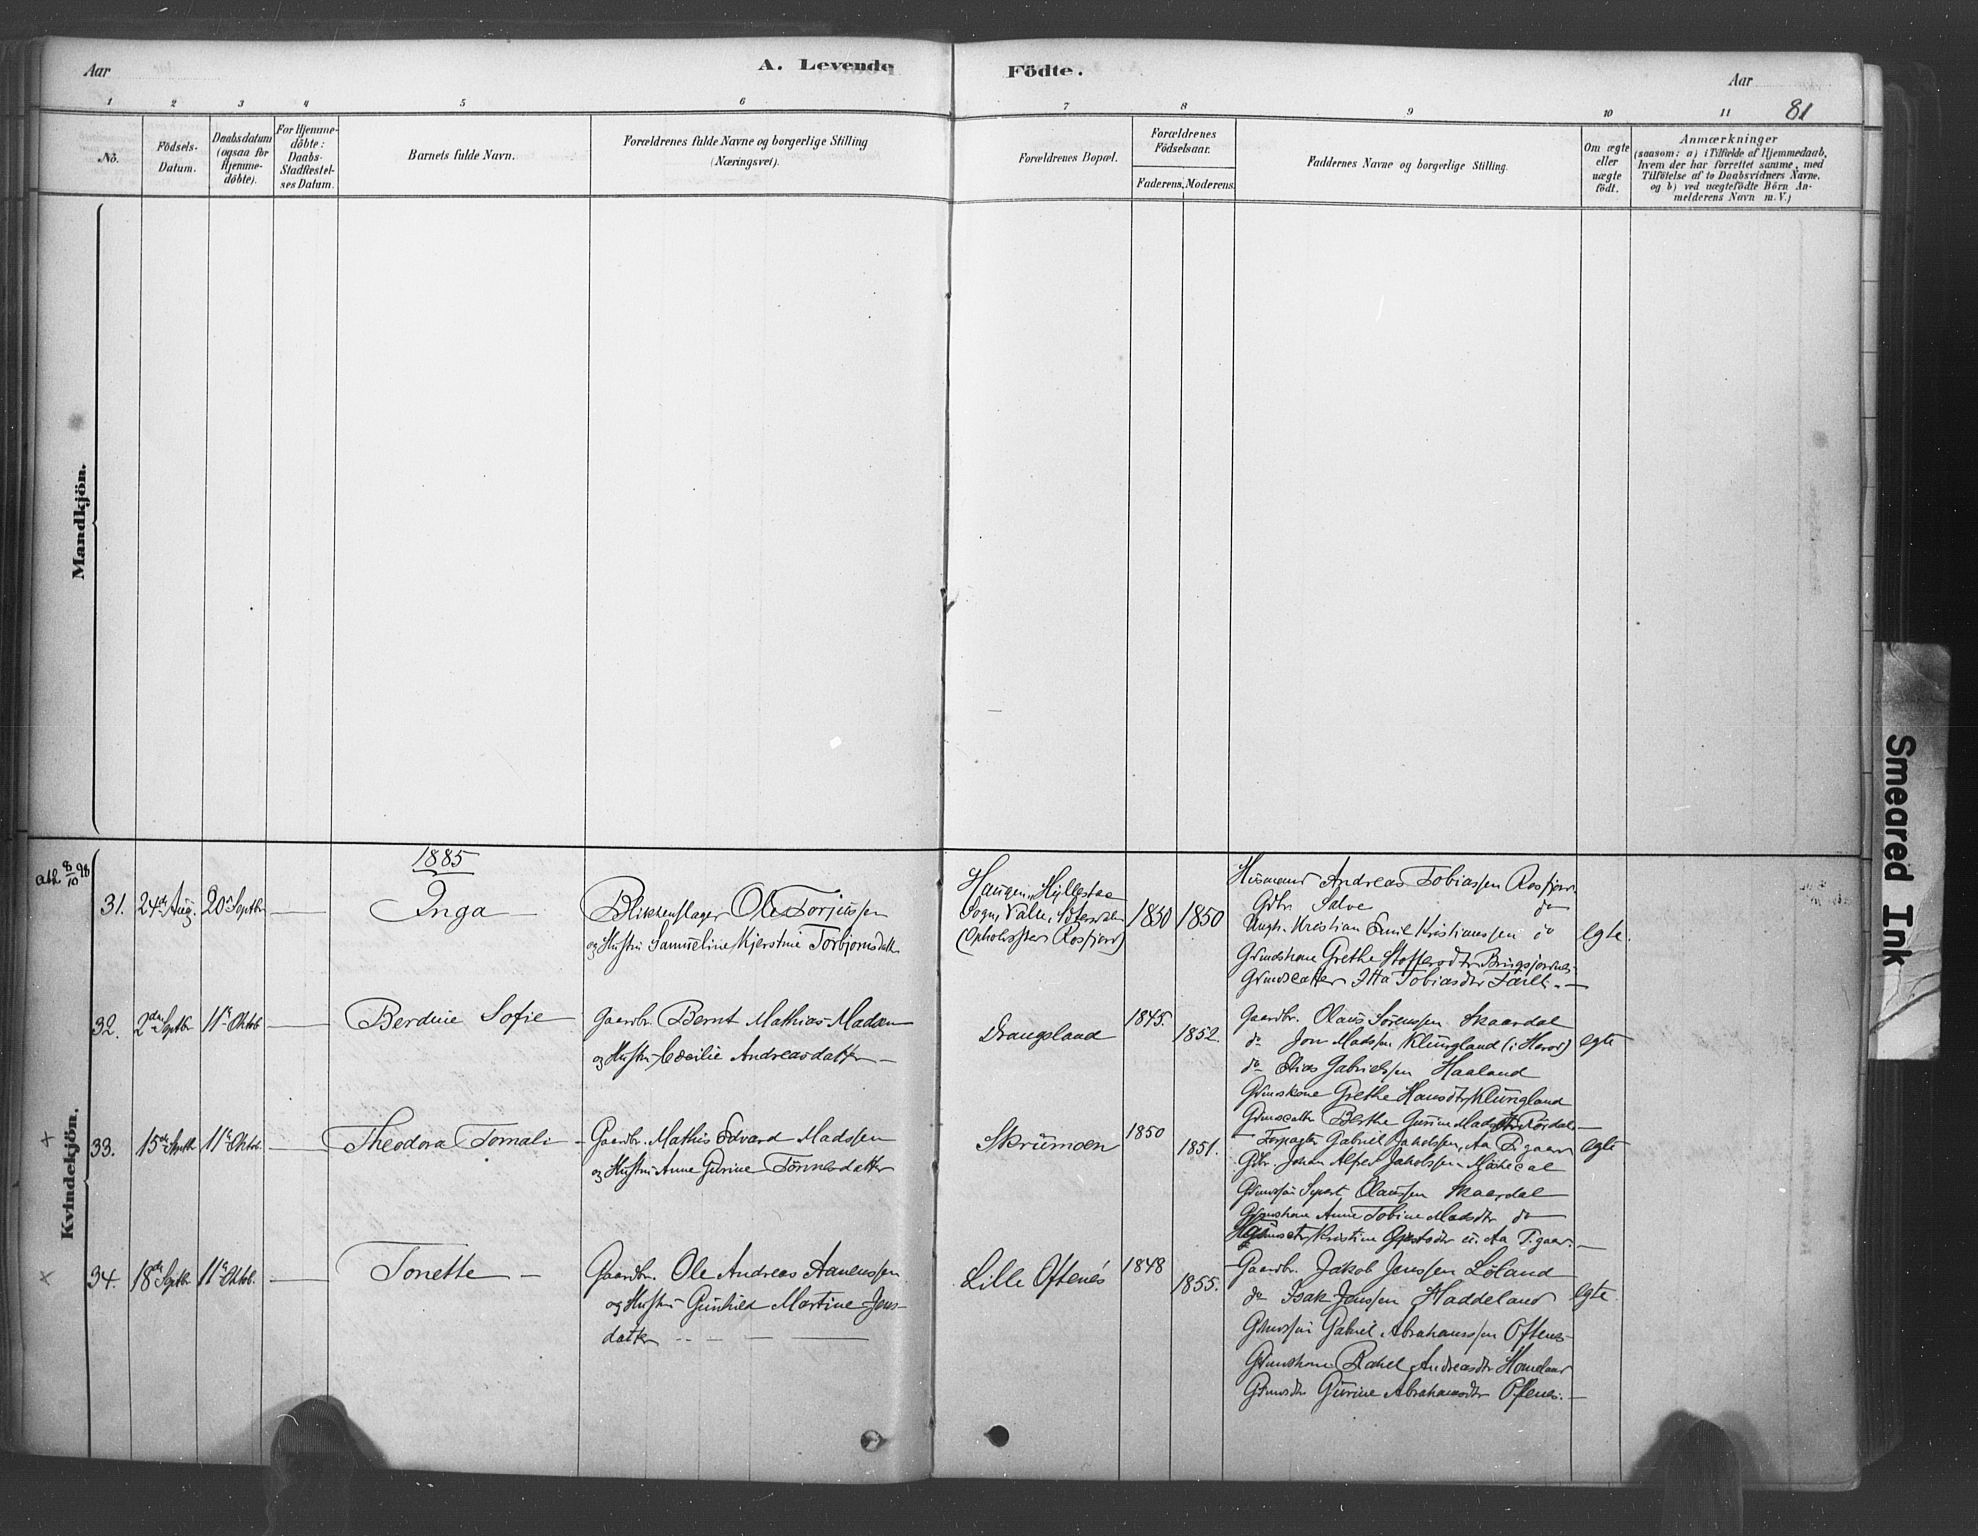 Aar
A. Levende
Födte.
Aar
81
1 2 3 4 5 6 7 8 9 10 11
No.
Födsels-
Datum.
Daabsdatum
(ogsaa for
Hjemme-
döbte).
For Hjemme-
döbte:
Daabs-
Stadfæstel-
ses Datum.
Barnets fulde Navn.
Forældrenes fulde Navne og borgerlige Stilling
(Næringsvei).
Forældrenes Bopæl.
Forældrenes
Födselsaar.
Faderens. Moderens.
Faddernes Navne og borgerlige Stilling.
Om ægte
eller
uægte
födt.
Anmærkninger
(saasom: a) i Tilfælde af Hjemmedaab,
hvem der har forrettet samme, med
Tilföielse af to Daabsvidners Navne,
og b) ved uægtefödte Börn An-
melderens Navn m. V.)
Mandkjön.
Kvindekjön.
1885
31. 24de Aug. 20de Septbr
Inga
Blikkenslager Ole Torjussen
og Hustru Samueline Kjerstine Torbjornsdatter
Haugen, Hyllestad
Sogn, Valle, Sætersdalen
(Opholdssted Rosfjord)
1830 1850
Husmand Andreas Tobiassen Rosfjord
Gdbr. Salve do
Ungk. Kristian Emil Kristianssen do
Grdmdskone Grethe Stoffersdtr Bringsjordnes
Grdmdsdatter Itta Tobiasdtr
ægte.
32. 2den Septbr 11te Oktob
Berdine Sofie
Gaardbr. Bernt Mathias Madsen
og Hustru Cecilie Andreasdatter
Drangsland
1845. 1852.
Gaardbr. Olaus Sörenssen Skaardal
do Jon Madssen Klungland (i Herod)
do Elias Gabrielssen Haaland
Grdmdskone Grethe Hansdtr Klungland
Grdmdsdatter Berthe Gurine Madsdtr
ægte
33. 15de Septbr 11te Oktob.
Theodora Tomali
Gaardbr. Mathis Edvard Madssen
og Hustru Anne Gurine Tönnesdatter
Skrumoen
1850 1851.
Forpagter Gabriel Jakobssen, Aa P.gaard
Gbr. Johan Alfred Jakobssen
Grdmdssön Syvert Olaussen Skaardal
Grdmdskone Anne Tobine Madsdtr do
Kristine
ægte
34. 18de Septbr 11te Oktob.
Tonette
Gaardbr. Ole Andreas Aanenssen
og Hustru Gunhild Martine Jens-
datter
Lille Oftenes
1848 1855.
Gaardbr. Jakob Jenssen Löland
do Isak Jenssen Haddeland
Grdmdssön Gabriel Abrahamssen Oftenes
Grdmdskone Rakel Andreasdtr
Grdmdsdtr Gurine Abrahamsdtr Oftenes.
ægte.
Smeared Ink